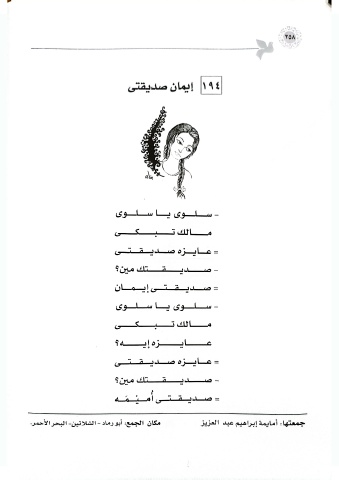 ٢٥٨
١٩٤ إيمان صديقتى
- سلوى يا سلوى
مالك تبكى
= عايزه صديقتى
- صديقتك مين؟
= صديقتى إيمان
- سلوى يا سلوى
مالك تبكى
عايزه إيه؟
= عايزه صديقتى
- صديقتك مين؟
= صديقتى أمَيْمَه
جمعتها: أمايمة إبراهيم عبد العزيز مكان الجمع: أبو رماد - الشلاتين - البحر الأحمر.